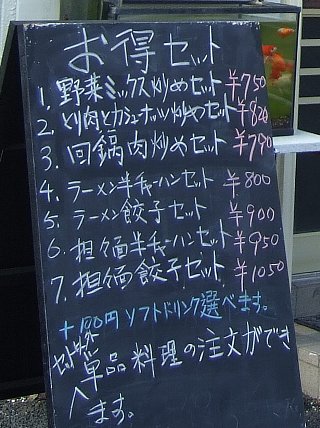 お得セット
1. 野菜ミックス炒めセット ¥750
2. とり肉とカシューナッツ炒めセット ¥820
3. 回鍋肉炒めセット ¥790
4. ラーメン半チャーハンセット ¥800
5. ラーメン餃子セット ¥900
6. 担々面半チャーハンセット ¥950
7. 担々面餃子セット ¥1050
+100円ソフトドリンク選べます。
セット以外
単品料理の注文ができ
ます。